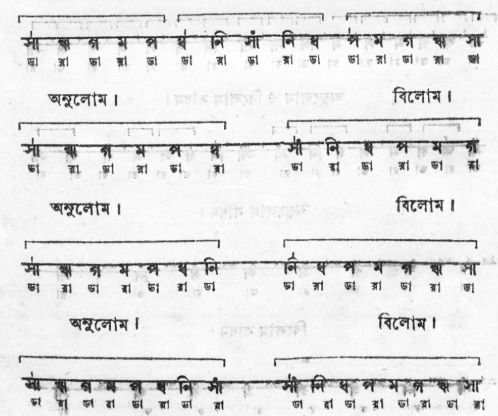 সা ঋ গ ম প ধ নি সা নি ধ প ম গ ঋ সা
ডা রা ডা রা ডা রা ডা রা ডা রা ডা রা ডা
অনুলোম। বিলোম।
সা ঋ গ ম প ধ সা নি ধ প ম গ
ডা রা ডা রা ডা রা ডা রা ডা রা ডা রা
অনুলোম। বিলোম।
সা ঋ গ ম প ধ নি নি ধ প ম গ ঋ সা
ডা রা ডা রা ডা রা ডা ডা রা ডা রা ডা রা ডা
অনুলোম। বিলোম।
সা ঋ গ ম প ধ নি সা সা নি ধ প ম গ ঋ সা
ডা রা ডা রা ডা রা ডা রা ডা রা ডা রা ডা রা ডা রা